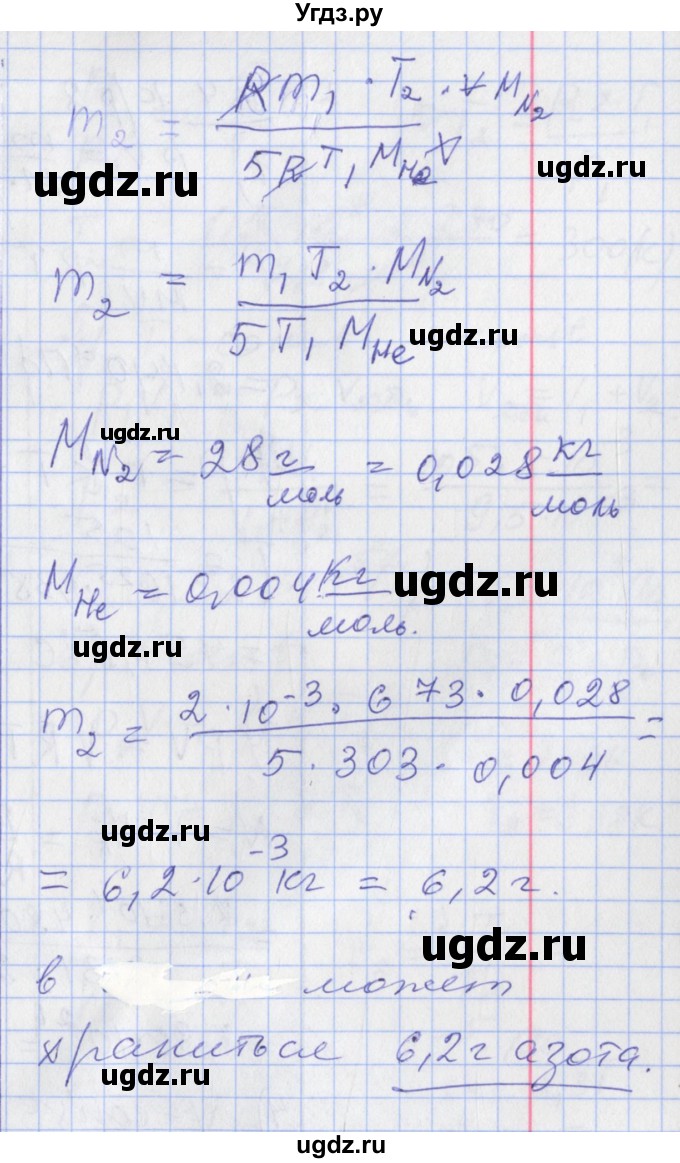 Угдз.ру
m₂ = R m₁ · T₂ · V M_N₂ / 5 R T₁ M_He V
ugdz.ru
ugdz.ru
m₂ = m₁ T₂ · M_N₂ / 5 T₁ M_He
ugdz.ru
ugdz.ru
M_N₂ = 28 г/моль = 0,028 кг/моль
M_He = 0,004 кг/моль.
ugdz.ru
ugdz.ru
m₂ = 2 · 10⁻³ · 673 · 0,028 / 5 · 303 · 0,004 =
ugdz.ru
= 6,2 · 10⁻³ кг = 6,2 г.
ugdz.ru
в может
храниться 6,2 г азота.
ugdz.ru
ugdz.ru